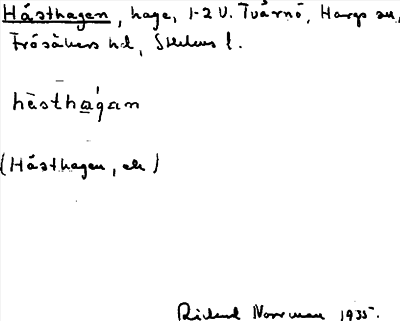 Hästhagen, hage, 1-2 V. Tvärnö, Hargs sn,
Frösåkers hd, Sthlms l.
hèsthа̲́gan
(Hästhagen, ek)
Rickard Norrman 1935.